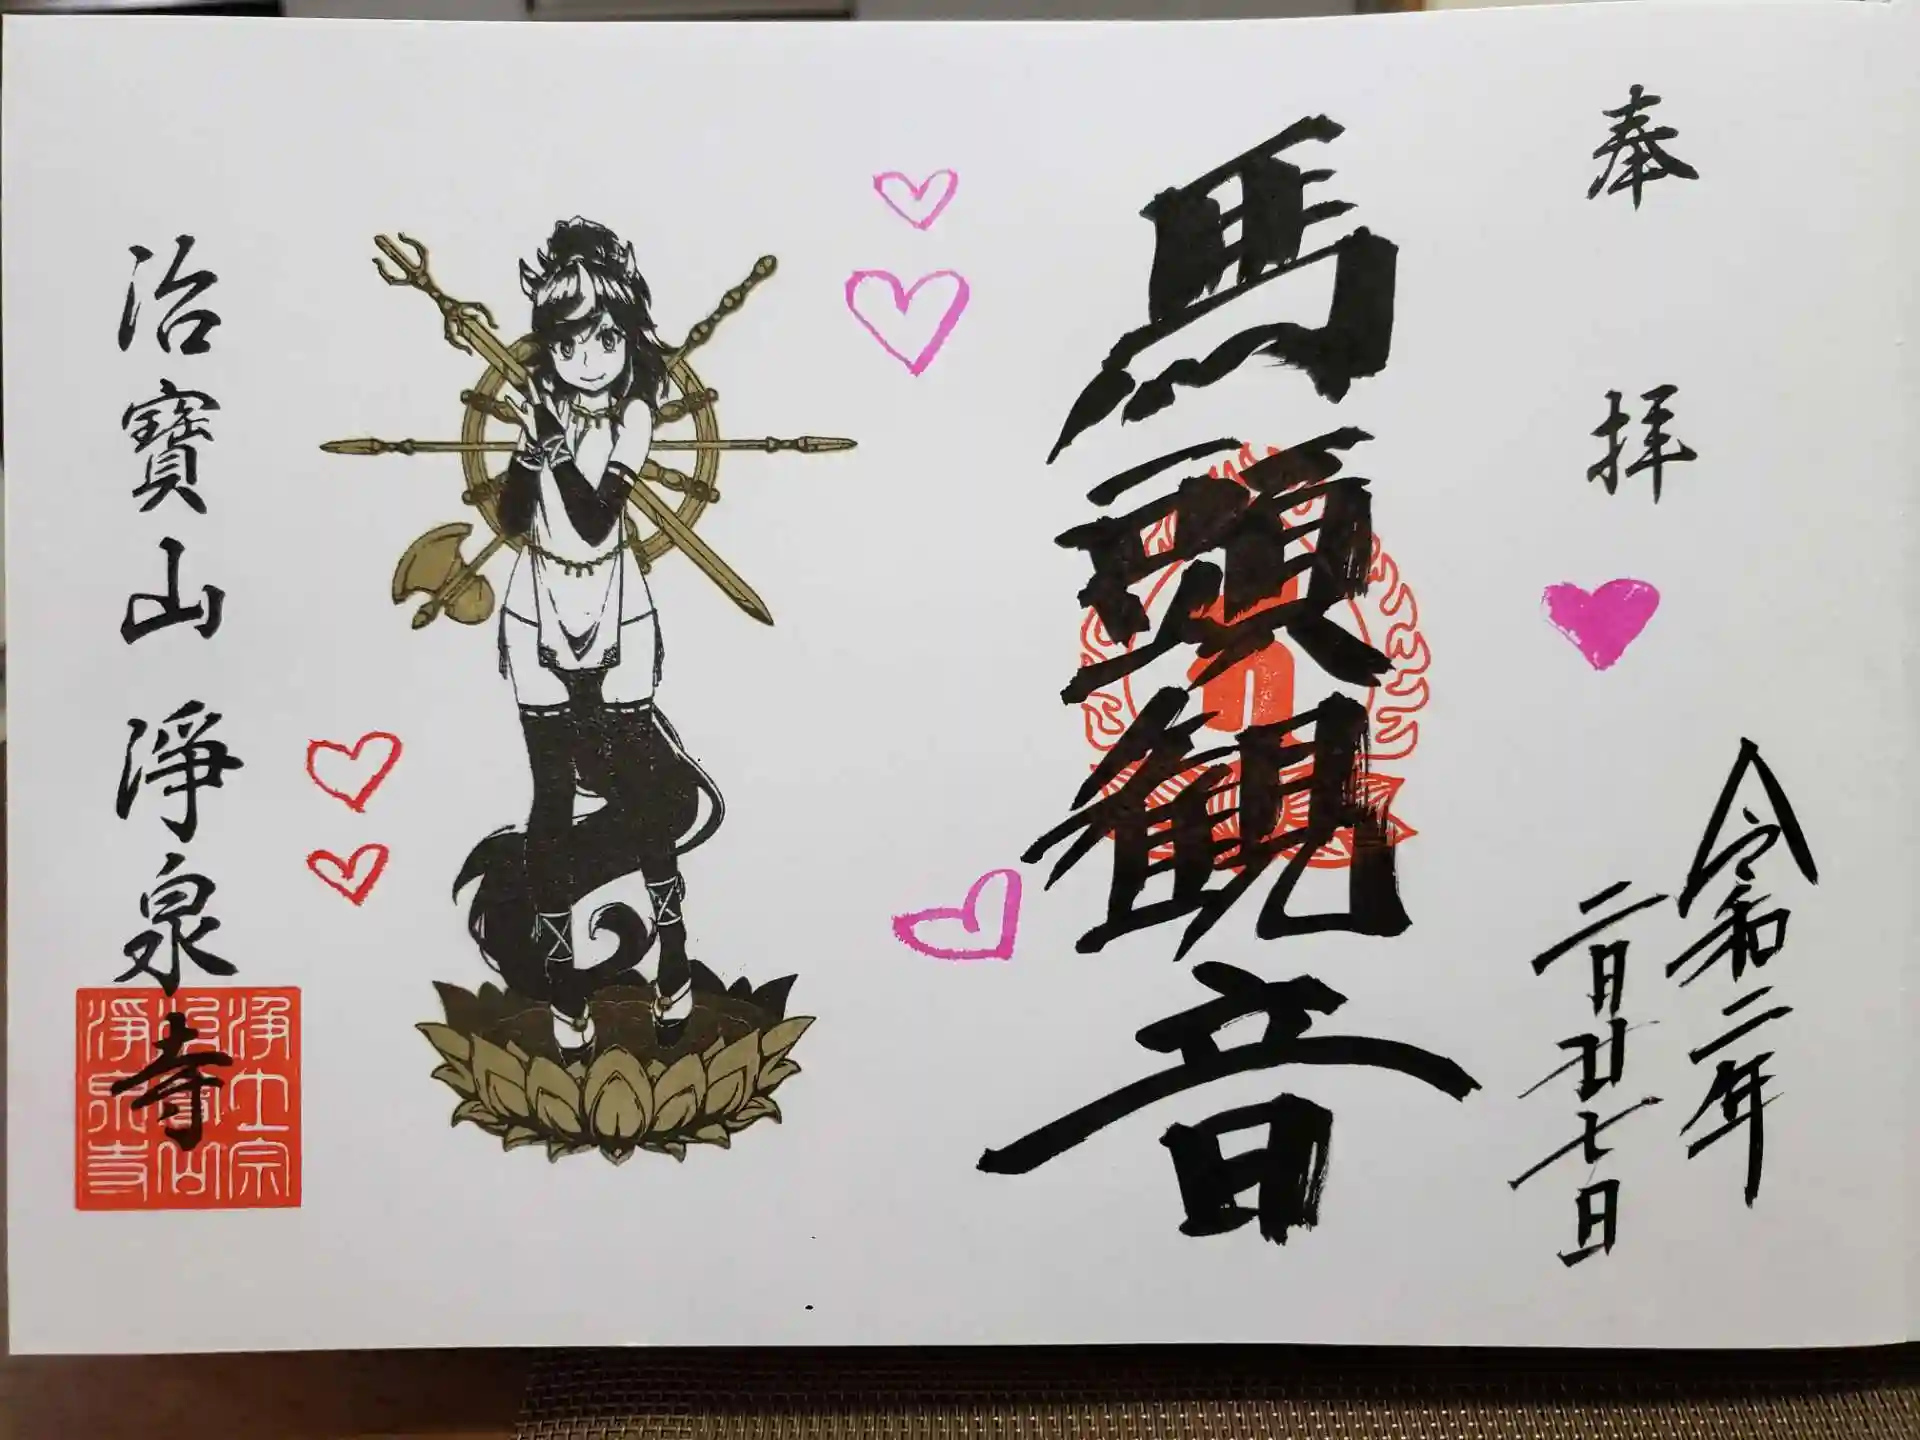 奉拝
令和二年
二月廿七日
馬頭観音
治寳山淨泉寺
浄土宗
治寳山
淨泉寺